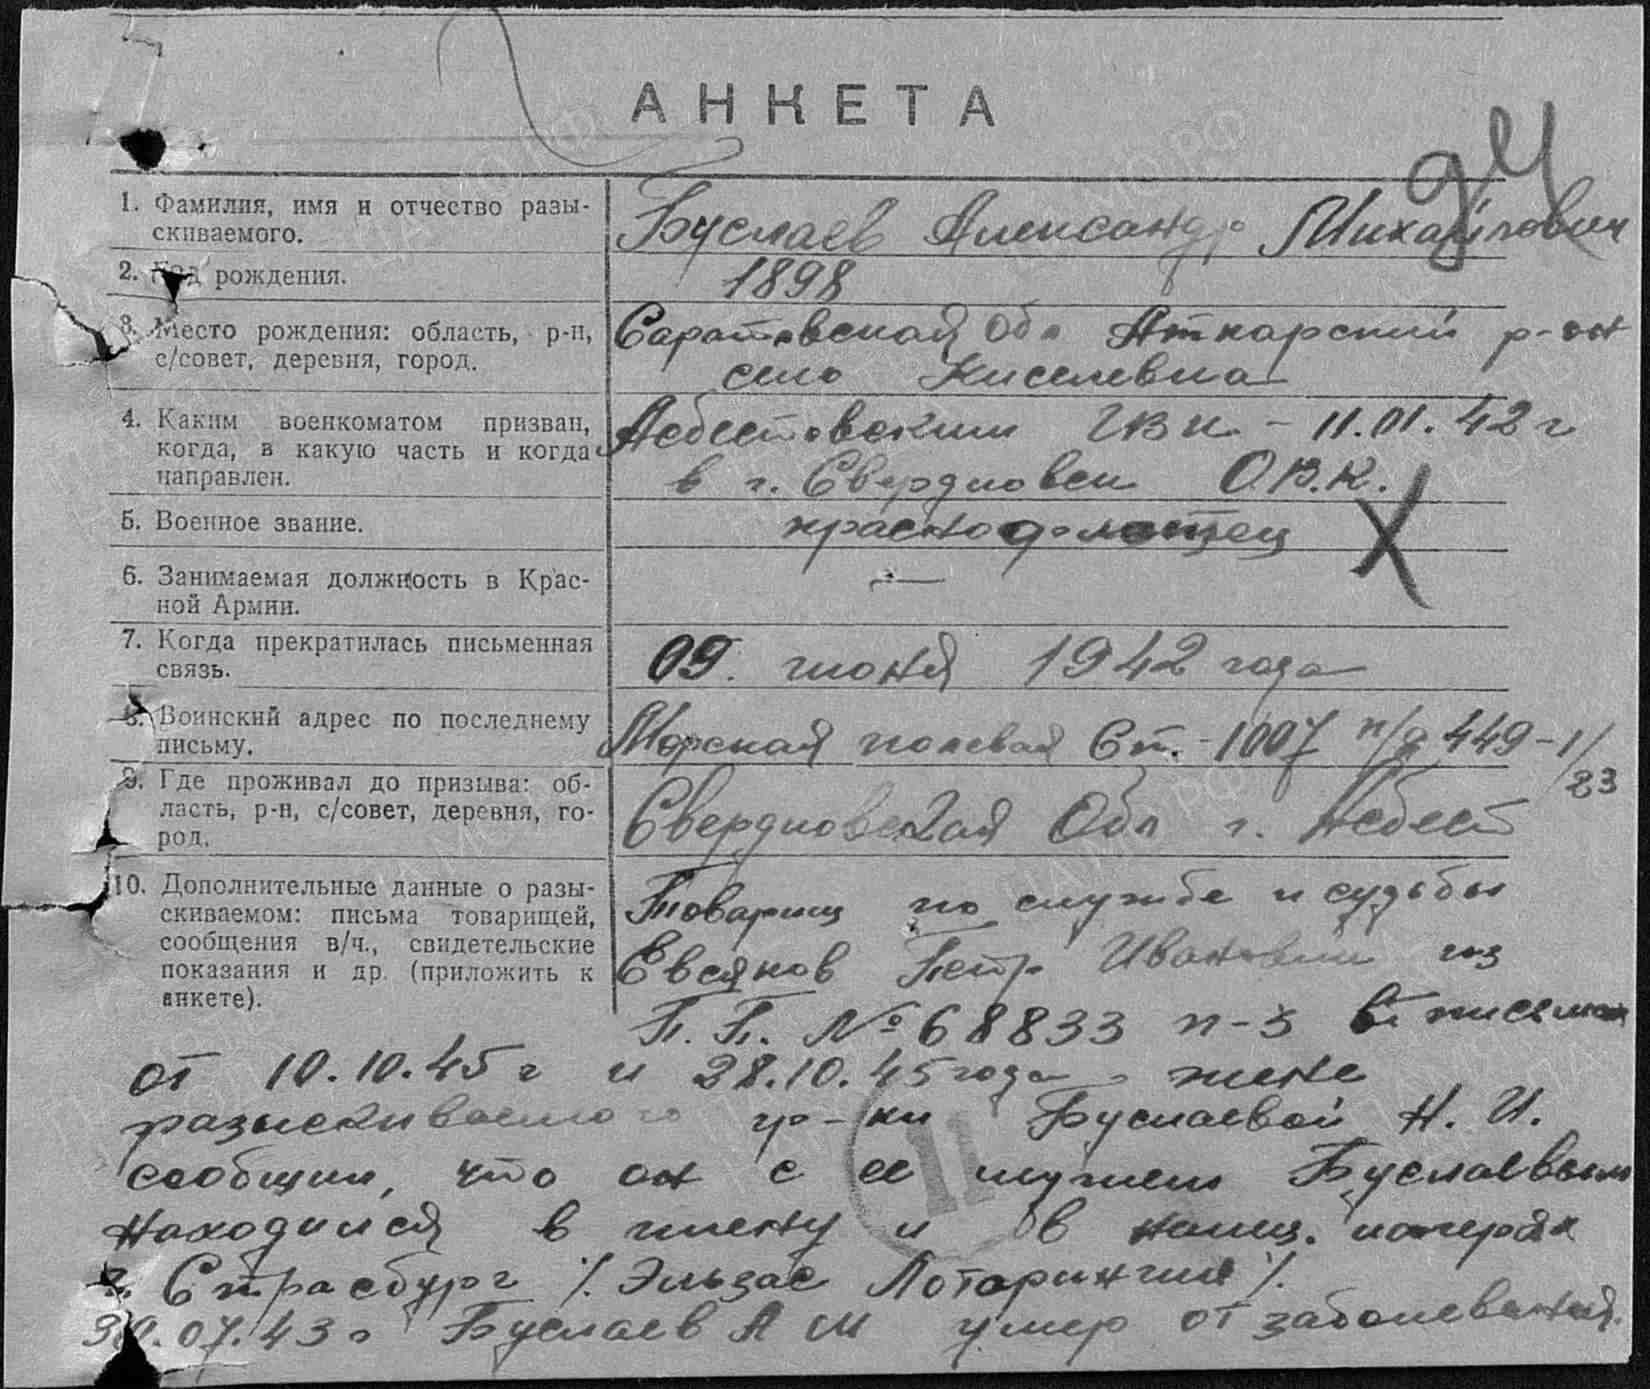 АНКЕТА
дч
1. Фамилия, имя и отчество разы-
скиваемого.
Буслаев Александр Михайлович
2. Год рождения.
1898
3. Место рождения: область, р-н,
с/совет, деревня, город.
Саратовская Обл Аткарский р-он
село Киселевка
4. Каким военкоматом призван,
когда, в какую часть и когда
направлен.
Асбестовским ГВК - 11.01.42 г
в г. Свердловск О.В.К.
5. Военное звание.
краснофлотец
6. Занимаемая должность в Крас-
ной Армии.
—
7. Когда прекратилась письменная
связь.
09. июня 1942 года
8. Воинский адрес по последнему
письму.
Морская полевая Ст. - 1007 п/я 449-1/
23
9. Где проживал до призыва: об-
ласть, р-н, с/совет, деревня, го-
род.
Свердловская Обл г. Асбест
10. Дополнительные данные о разы-
скиваемом: письма товарищей,
сообщения в/ч., свидетельские
показания и др. (приложить к
анкете).
Товарищ по службе и судьбы
Евсяков Петр Иванович из
П.П. № 68833 п-з в письмах
от 10.10.45 г и 28.10.45 года жене
разыскиваемого гр-ки Буслаевой Н. И.
сообщил, что он с ее мужем Буслаевым
находился в плену и в немец. лагерях
г. Страсбург /. Эльзас Лотарингия /.
30.07.43 г Буслаев А М умер от заболевания.
11